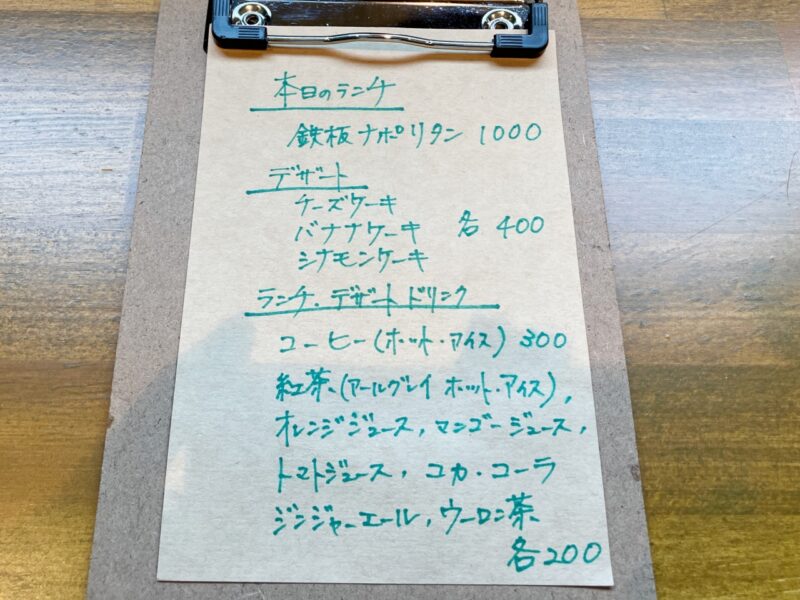 本日のランチ
鉄板ナポリタン 1000
デザート
チーズケーキ
バナナケーキ 各 400
シナモンケーキ
ランチ・デザートドリンク
コーヒー(ホット・アイス) 300
紅茶、(アールグレイ ホット・アイス),
オレンジジュース, マンゴージュース,
トマトジュース, コカ・コーラ
ジンジャーエール, ウーロン茶、
各200